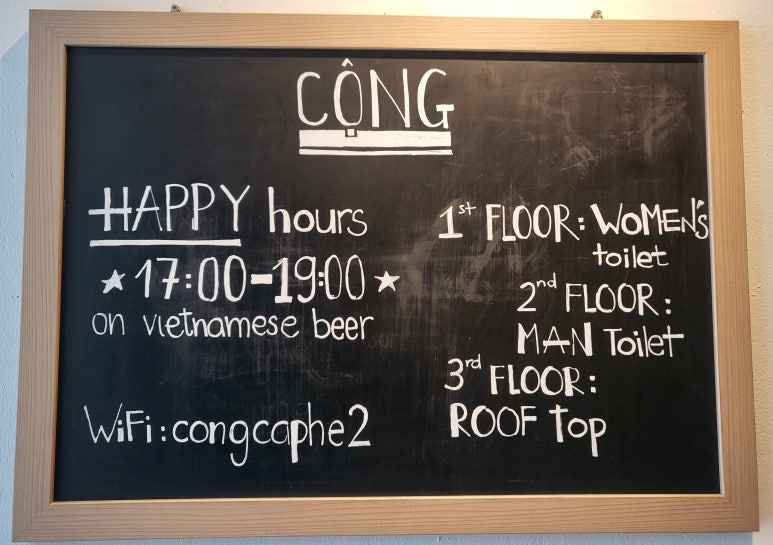 CỘNG
HAPPY hours
★ 17:00-19:00 ★
on vietnamese beer
WiFi: congcaphe2
1st FLOOR: WOMEN's
toilet
2nd FLOOR:
MAN Toilet
3rd FLOOR:
ROOF Top